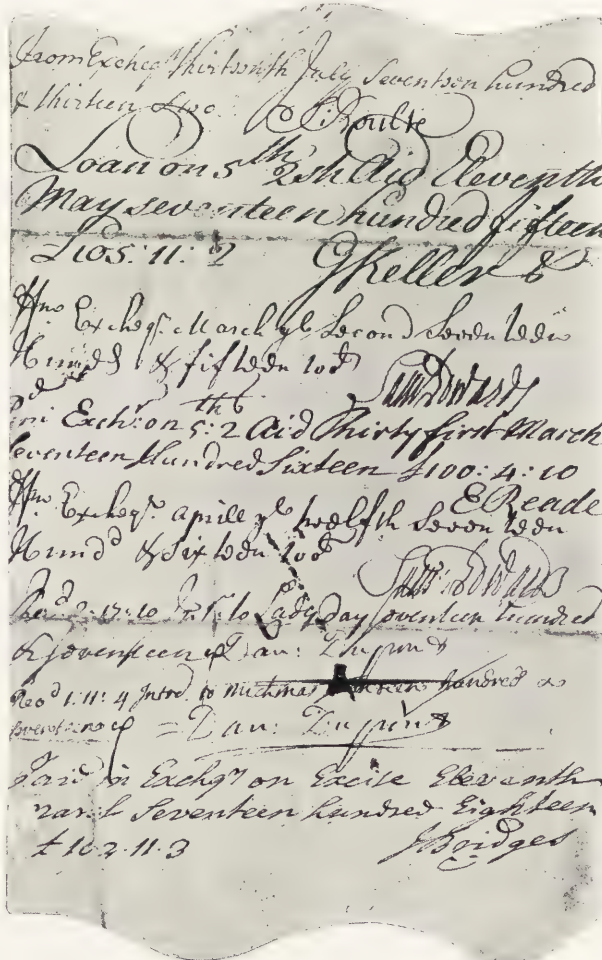 From Excheqr thirteenth July Seventeen hundred
& thirteen two
Loan on 5th 2sh Aid Eleventh
May seventeen hundred fifteen
£105: 11: 2 G Keller
Excheqr March ye Second Seven teen
& fifteen
Sam Edwards
Exchr on 5th: 2 Aid Thirty first March
Seventeen Hundred Sixteen £100: 4: 10
E Reade
Excheqr aprill ye twelfth Seven teen
Hund & Six teen
Sam: Edwards
Recd 2: 17: 10 to Lady day Seventeen hundred
& Seventeen Dan:
Recd 1: 11: 4 to Michmas hundred
Dan:
Paid in Exchqr on Excise Eleventh
Seventeen hundred Eighteen
£ 102. 11. 3 J Bridges